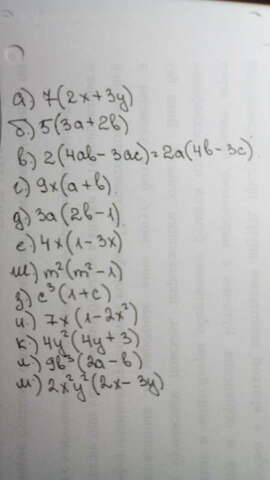 а) 7(2x+3y)
б) 5(3a+2b)
в) 2(4ab-3ac)=2a(4b-3c)
г) 9x(a+b)
д) 3a(2b-1)
е) 4x(1-3x)
ж) m²(m²-1)
з) c³(1+c)
и) 7x(1-2x²)
к) 4y²(4y+3)
л) 9b³(2a-b)
м) 2x²y²(2x-3y)